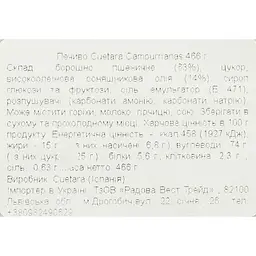 Печиво Cuetara Campurrianas 466 г
Склад: борошно пшеничне (63%), цукор,
високоолеїнова соняшникова олія (14%), сироп
глюкози та фруктози, сіль, емульгатор (Е 471),
розпушувачі (карбонати амонію, карбонати натрію).
Може містити горіхи, молоко, гірчицю, сою. Зберігати в
сухому та прохолодному місці. Харчова цінність в 100 г
продукту: Енергетична цінність - ккал 458 (1927 кДж),
жири - 15 г з них насичені 6,8 г), вуглеводи 74 г
( з них цукр 25 г), білки 5,6 г, клітковина 2,3 г,
сіль 0,63 г. маса нетто: 466 г
Виробник: Cuetara (Іспанія)
Імпортер в Україні: ТзОВ «Радова Вест Трейд», 82100
Львівська обл. м.Дрогобич вул. 22 січня 26 тел.